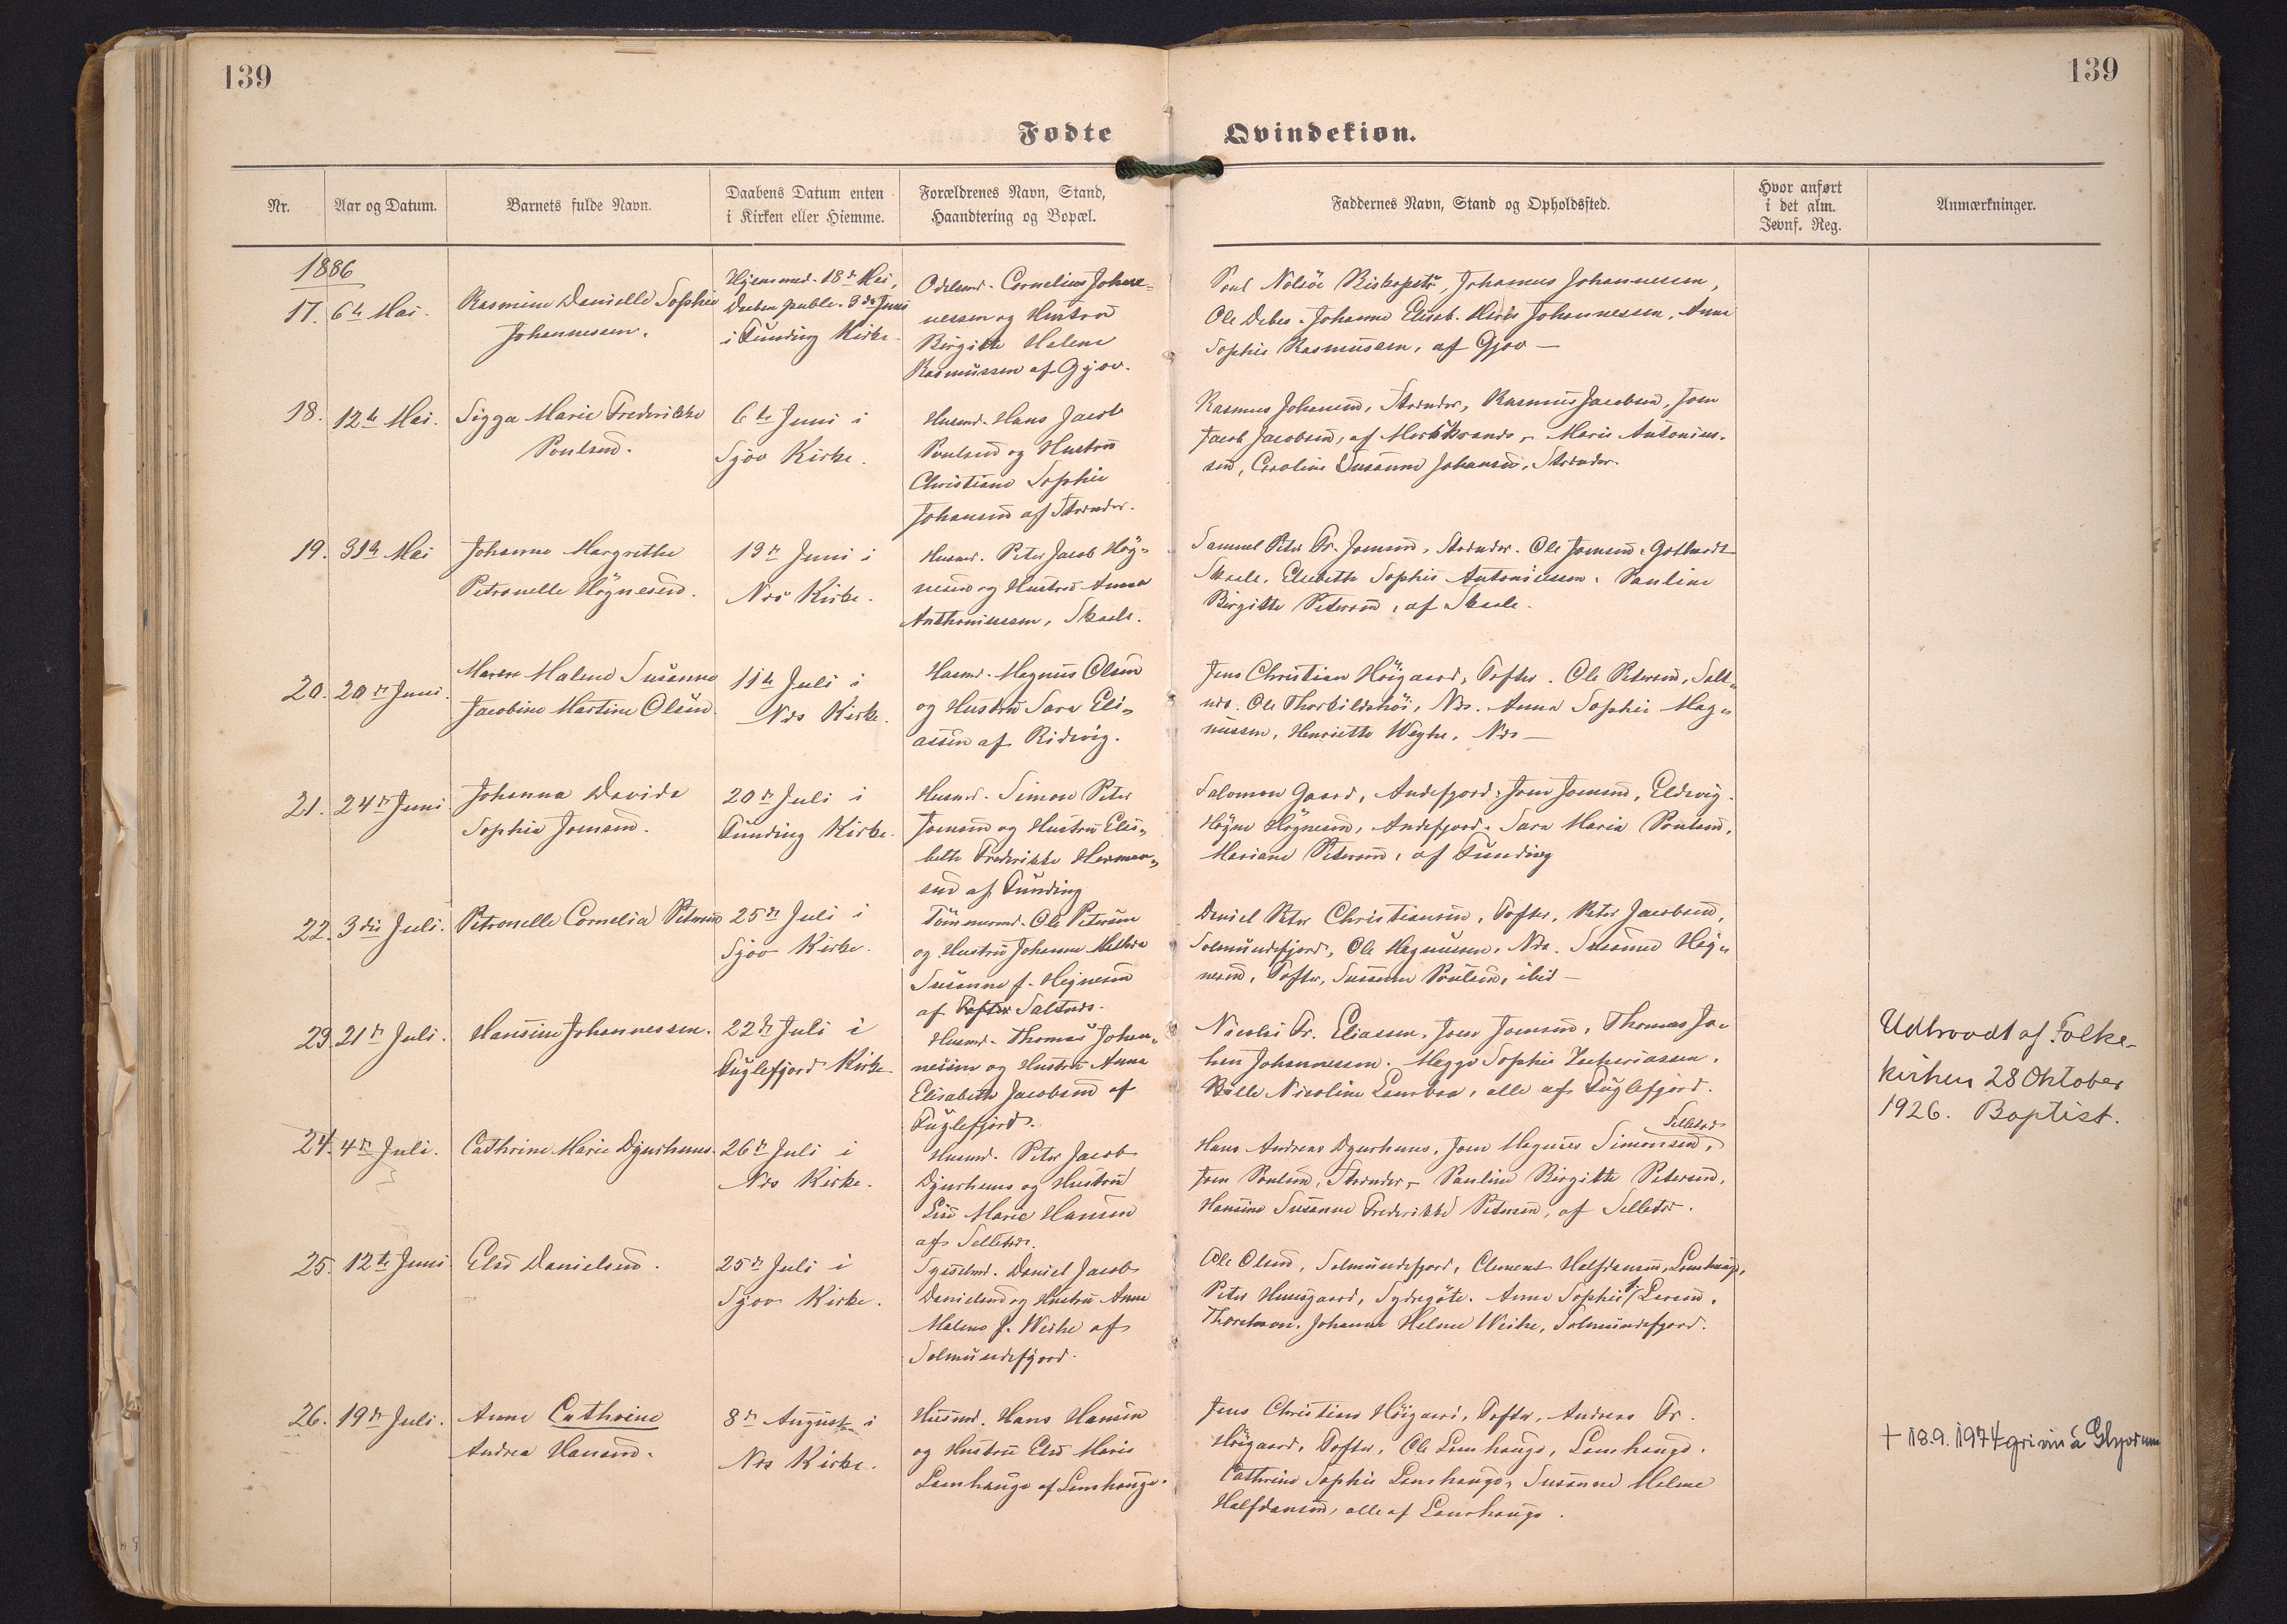 139
139
Fødte
Qvindekiøn.
Nr.
Aar og Datum.
Barnets fulde Navn.
Daabens Datum enten
i Kirken eller Hiemme.
Forældrenes Navn, Stand,
Haandtering og Bopæl.
Faddernes Navn, Stand og Opholdssted.
Hvor anført
i det alm.
Jevnf. Reg.
Anmærkninger.
1886
17. 6te Mai.
Rasmine Danielle Sophie
Johannesen.
Hjemmed. 18de Mai,
Daaben publ. 3die Juni
i Funding Kirke.
Odelsmd. Cornelius Johan-
nessen og Hustru
Birgitte Malene
Rasmussen af Gjov.
Johannes Johannessen,
Ole Debes. Johanne Elisab. Johannessen, Anna
Sophie Rasmussen, af Gjov —
18. 12te Mai.
Sigga Marie Frederikke
Poulsen.
6te Juni i
Sjov Kirke.
Husmd. Hans Jacob
Poulsen og Hustru
Christiane Sophie
Johansen af Strender.
Rasmus Johansen, Strender, Rasmus Jacobsen, Joen
Jacob Jacobsen, af Morskranes. Marie Antonius-
sen, Caroline Susanne Johansen, Strender.
19. 31te Mai
Johanne Margrethe
Petronelle Högnesen.
13de Juni i
Næs Kirke.
Husmd. Peter Jacob Hög-
nesen og Hustru Anna
Anthoniussen, Skaale.
Samuel Peter Fr. Joensen, Strender. Ole Joensen, Gotthardt
Skaale. Elsebeth Sophie Antoniussen. Pauline
Birgitte Petersen, af Skaale.
20. 20de Juni.
Maren Malene Susanne
Jacobine Martine Olsen.
11te Juli i
Næs Kirke.
Husmd. Magnus Olsen
og Hustru Sara Eli-
assen af Ridevig.
Jens Christian Höigaard, Tofter. Ole Petersen, Salt-
næs. Ole Thorkildshöi, Næs. Anna Sophie Mag-
nussen, Henriette Weyhe, Næs —
21. 24de Juni
Johanna Davida
Sophie Joensen.
20de Juli i
Funding Kirke.
Husmd. Simon Peter
Joensen og Hustru Elis-
beth Frederikke Herman-
sen af Funding
Salomon Gaard, Andefjord. Joen Joensen, Eldevig.
Högne Högnesen, Andefjord. Sara Maria Poulsen,
Mariane Petersen, af Funding
22. 3die Juli.
Petronelle Cornelia Petersen
25de Juli i
Sjov Kirke.
Tömmermd. Ole Petersen
og Hustru Johanne
Susanne f. Högnesen
af Tofter Saltnæs.
Daniel Peter Christiansen, Tofter, Peter Jacobsen,
Solmundefjord, Ole Magnussen, Næs. Susanne Hög-
nesen, Tofter, Susanne Poulsen, ibid —
23. 21de Juli.
Hansine Johannessen.
22de Juli i
Fuglefjord Kirke
Husmd. Thomas Johan-
nessen og Hustru Anna
Elisabeth Jacobsen af
Fuglefjord.
Nicolai Fr. Eliassen, Joen Joensen, Thomas Jo-
hen Johannessen. Megga Sophie Zachariassen,
Nicoline Lamboa, alle af Fuglefjord.
Udtraadt af Folke-
kirken 28 Oktober
1926. Baptist.
24. 4de Juli.
Cathrine Marie Djurhuus.
26de Juli i
Næs Kirke.
Husmd. Peter Jacob
Djurhuus og Hustru
Lise Marie Hansen
af Selletræ.
Selletræ
Hans Andreas Djurhuus, Joen Magnus Simonsen,
Joen Poulsen, Strender. Pauline Birgitte Petersen,
Hansine Susanne Frederikke Petersen, af Selletræ.
25. 12te Juni
Else Danielsen.
25de Juli i
Sjov Kirke.
Sysselmd. Daniel Jacob
Danielsen og Hustru Anna
Malene f. Weihe af
Solmundefjord.
Ole Olsen, Solmundefjord, Clement Halfdansen, Lamhauge,
Peter Huusgaard, Sydregöte. Anna Sophie f. Larsen,
Thorshavn. Johanne Helene Weihe, Solmundefjord.
26. 19de Juli.
Anna Cathrine
Andrea Hansen.
8de August i
Næs Kirke.
Husmd. Hans Hansen
og Hustru Else Marie
Lamhauge af Lamhauge.
Jens Christian Höigaard, Tofter, Andreas Fr.
Höigaard, Tofter, Ole Lamhauge, Lamhauge.
Cathrine Sophie Lamhauge, Susanne Helene
Halfdansen, alle af Lamhauge.
+ 18.9.1974 grivin á Glyvrum